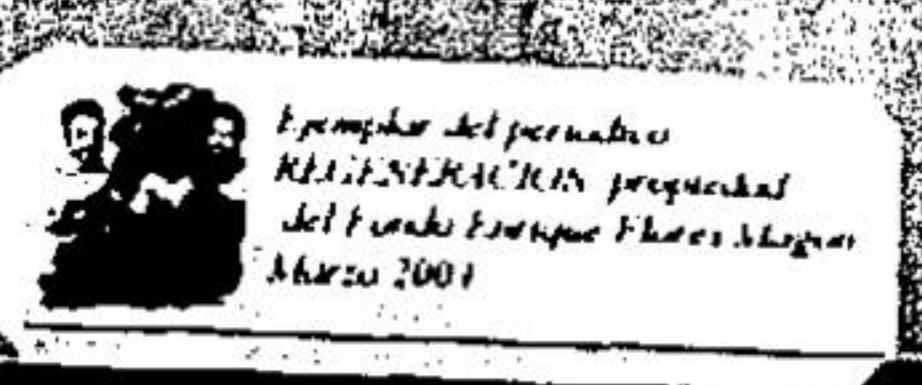 Ejemplar del periodico
REGENERACION propiedad
del Fondo Enrique Flores Magon
Marzo 2001